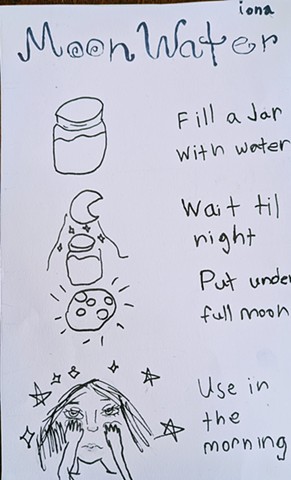 iona
Moon Water
Fill a Jar
with water
Wait til
night
Put under
full moon
Use in
the
morning